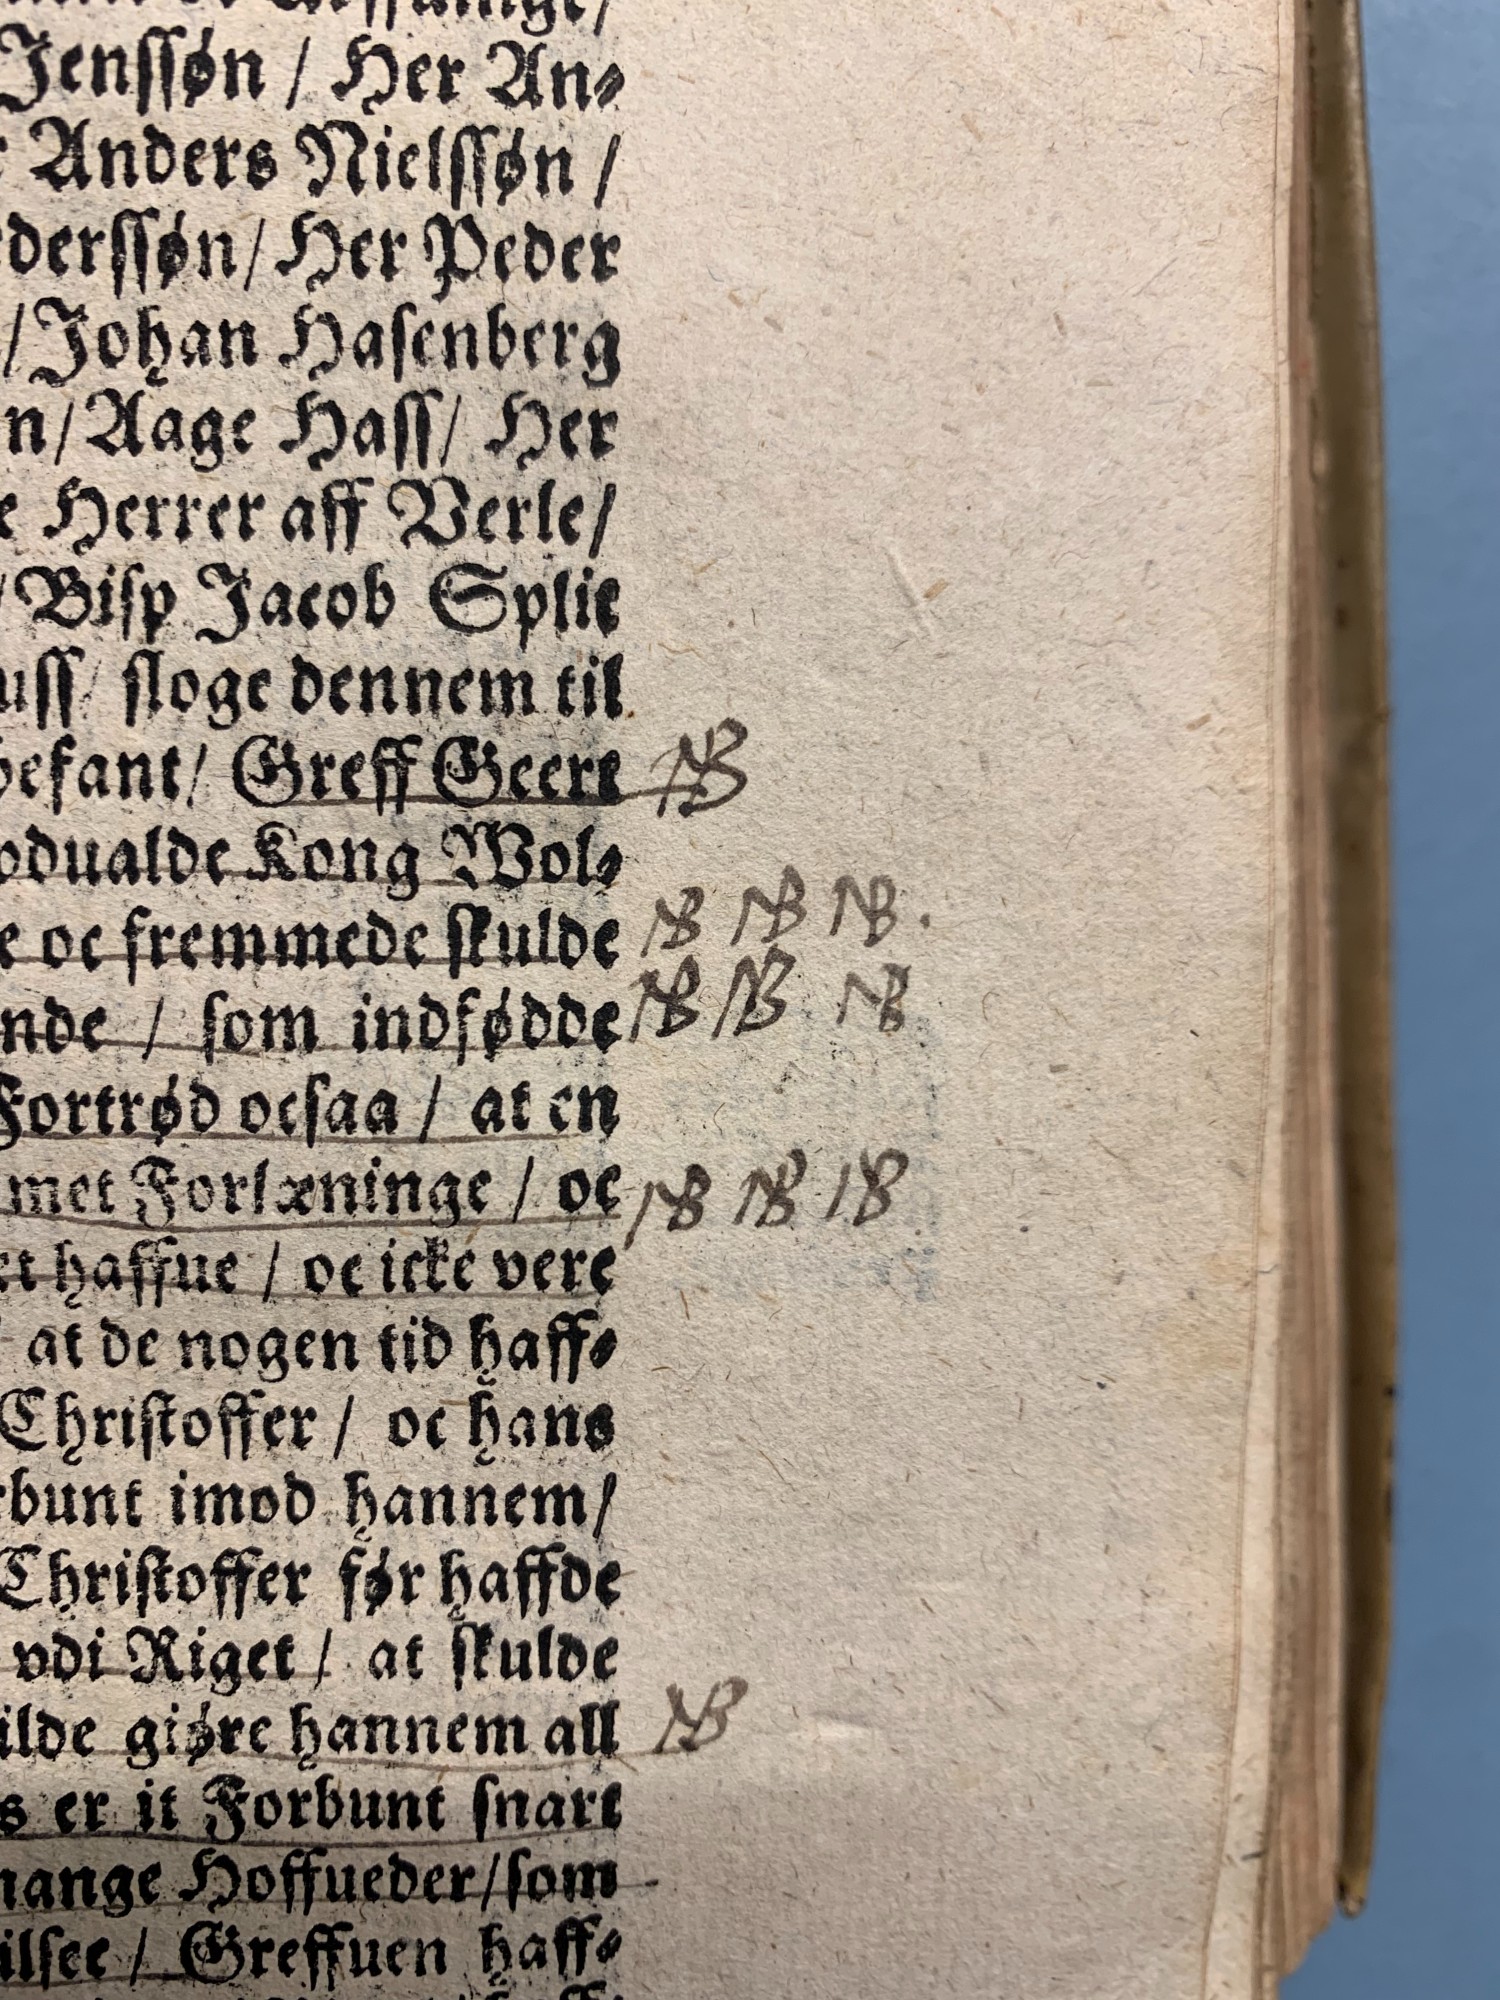 Jenſſøn / Her An⸗
Anders Nielſſøn /
derſſøn / Her Peder
/ Johan Haſenberg
n / Aage Haſſ / Her
e Herrer aff Verle /
/ Biſp Jacob Split
uſſ / ſloge dennem til
efant / Greff Geert NB
odualde Kong Wol⸗
e oc fremmede ſkulde NB NB NB.
nde / ſom indfødde NB NB NB
Fortrød ocſaa / at en
met Forlæninge / oc NB NB NB
et haffue / oc icke vere
at de nogen tid haff⸗
Chriſtoffer / oc hans
rbunt imod hannem /
Chriſtoffer før haffde
vdi Riget / at ſkulde
ilde giøre hannem all NB
s er it Forbunt ſnart
mange Hoffueder / ſom
ilſee / Greffuen haff⸗